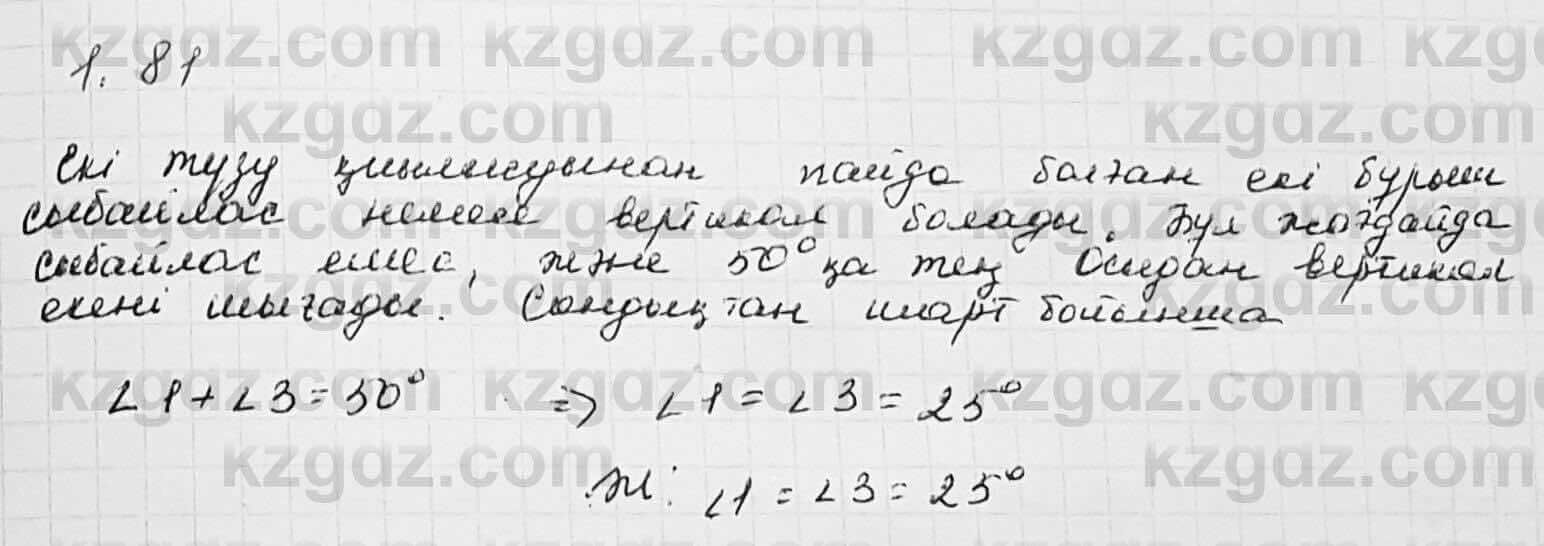 kzgaz.com kzgaz.com kzgaz.com kzgaz.com
1.81
kzgaz.com kzgaz.com kzgaz.com
Екі түзу қиылысуынан пайда болған екі бұрыш
сыбайлас немесе вертикал болады. Бұл жағдайда
kzgaz.com kzgaz.com kzgaz.com kzgaz.com
сыбайлас емес, және 50° қа тең Осыдан вертикал
екені шығады. Сондықтан шарт бойынша
kzgaz.com kzgaz.com kzgaz.com
∠1+∠3=50° => ∠1=∠3=25°
kzgaz.com kzgaz.com kzgaz.com kzgaz.com
Ж: ∠1=∠3=25°
kzgaz.com kzgaz.com kzgaz.com